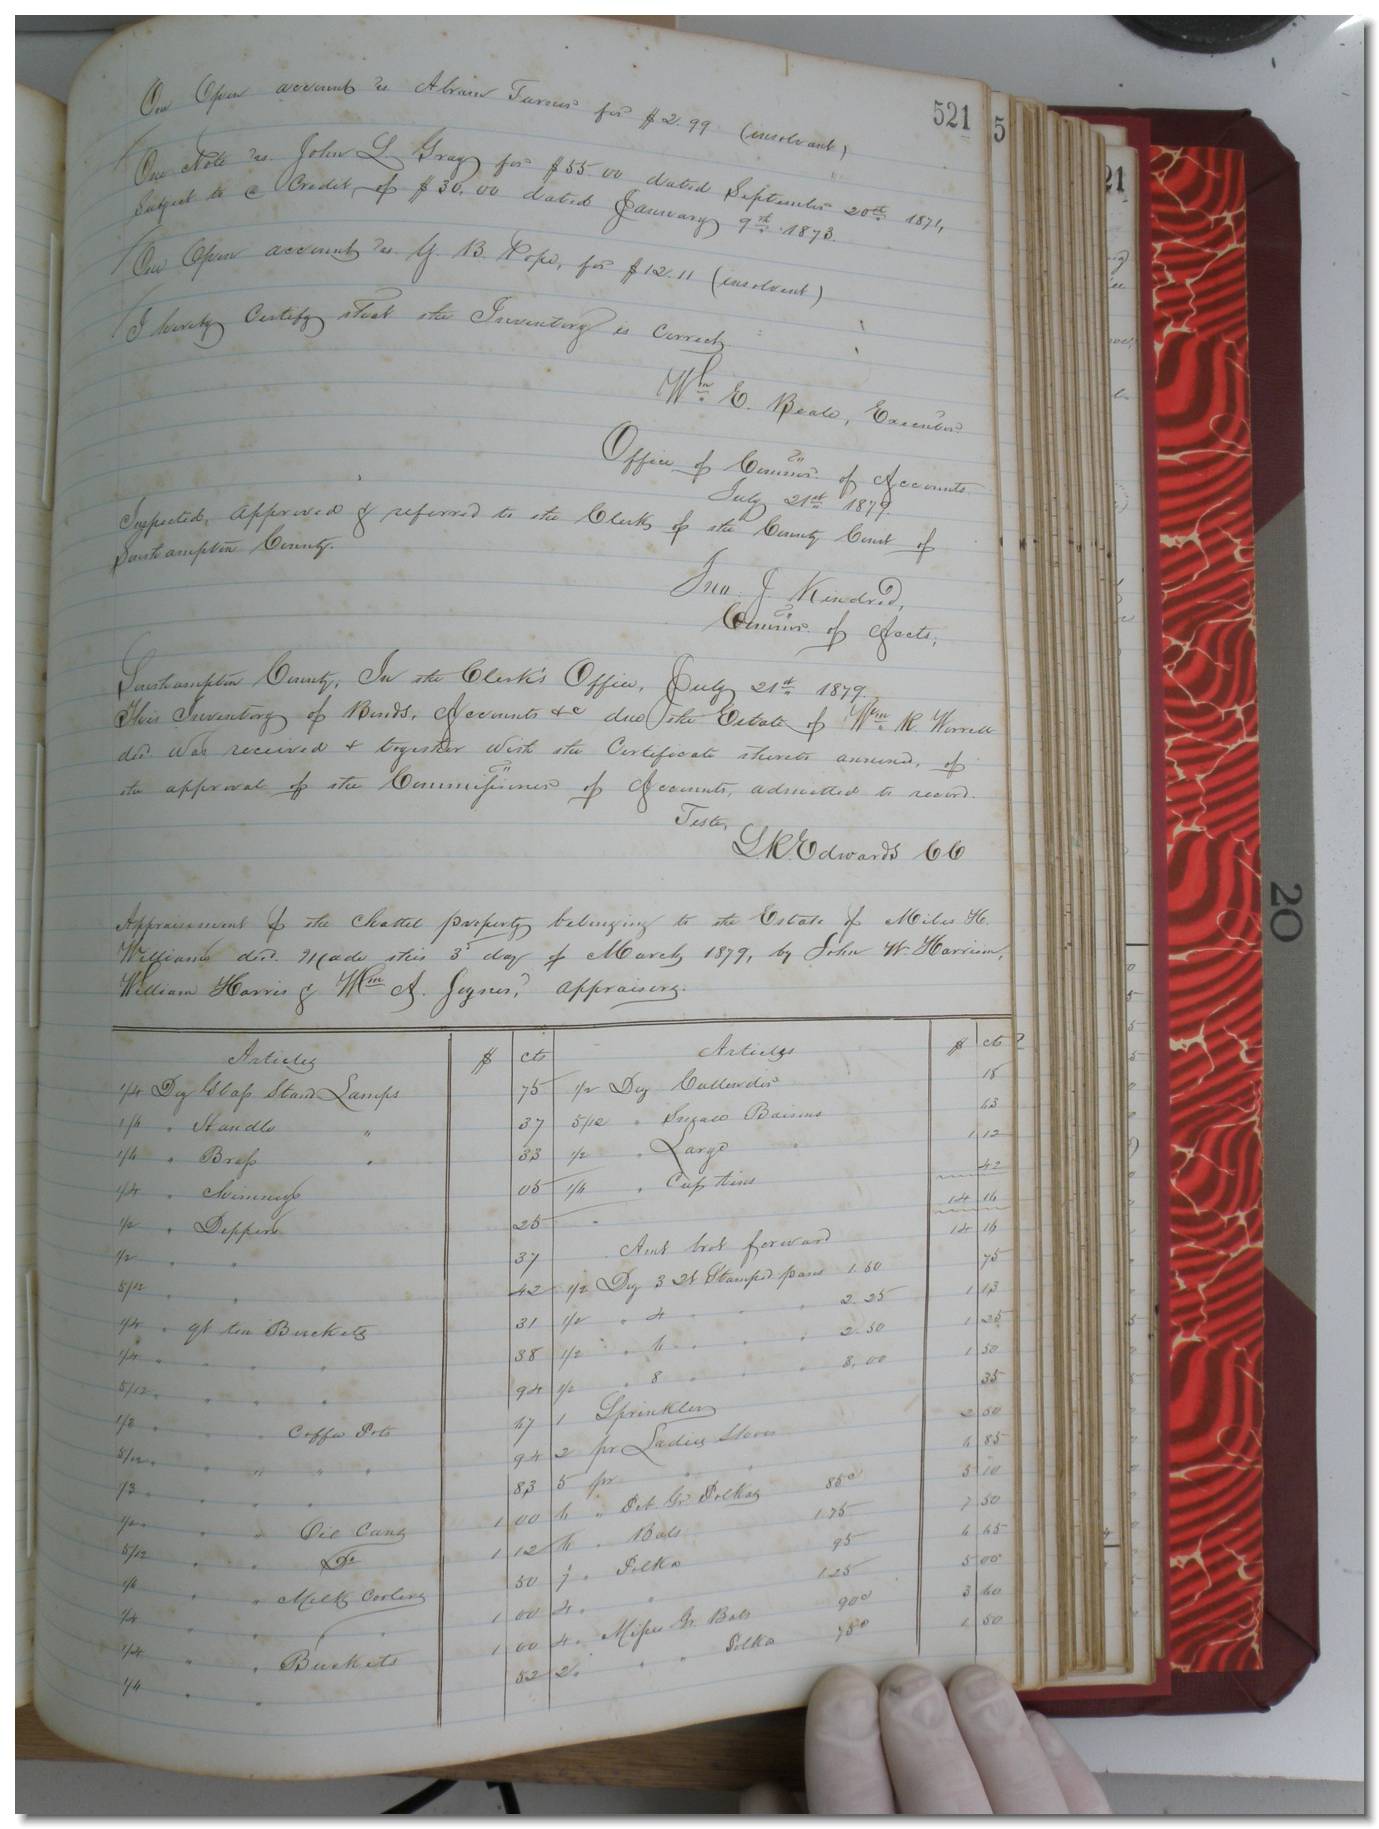 521
On Open account vs Abram Turner for $2.99 (insolvent)
One Note vs. John L. Gray for $55.00 dated September 20th 1871,
Subject to a Credit of $30.00 dated January 9th 1873.
On Open account vs. B. Pope, for $12.11 (insolvent)
I hereby Certify that the Inventory is correct.
Wm E. Beale, Executor
Office of Commr. of Accounts
July 21st 1879.
Inspected, approved & referred to the Clerk of the County Court of
Southampton County.
Jno. J. Kindred,
Commr. of Accts,
Southampton County, In the Clerk's Office, July 21st 1879.
This Inventory of Bonds, Accounts &c due the Estate of Wm R. Worrell
decd was received & together with the Certificate thereto annexed, of
the approval of the Commissioner of Accounts, admitted to record.
Teste,
L.R. Edwards CC
Appraisement of the chattel property belonging to the Estate of Miles H.
Williams decd. Made this 3d day of March 1879, by John W. Harrison,
William Harris & Wm A. Joyner, appraisers.
Articles $ cts Articles $ cts
1/4 Doz Glass Stand Lamps 75 1/2 Doz Cullenders 18
1/4 " Handle " 37 5/12 " Basins 63
1/4 " Brass " 33 1/2 " Large " 1 12
1/4 " 05 1/4 " Cup tins 42
1/2 " Dippers 25 14 16
1/2 " " 37 Amt brot forward 14 16
5/12 " 42 1/2 Doz 3 Qt Stamped pans 1.50 75
1/4 " qt tin Buckets 31 1/2 " 4 " " 2.25 1 13
1/4 " " " " 38 1/2 " 6 " " 2.50 1 25
5/12 " " " " 94 1/2 " 8 " " 3.00 1 50
" " Coffee Pots 67 1 Sprinkler 35
5/12 " " " " 94 2 pr Ladies Shoes 2 50
" " " 83 5 pr " " 6 85
" " Oil Cans 1 00 6 " Pet Gr Polkas 85c 5 10
5/12 " " Do 1 12 6 " Bals 1.25 7 50
" " Milk Coolers 50 7 " Polka 95 6 65
1/4 " " " 1 00 4 " " 1.25 5 00
1/4 " " Buckets 1 00 4 " Misses Gr Bals 90c 3 60
1/4 " " 52 2 " " " Polka 75c 1 50
20